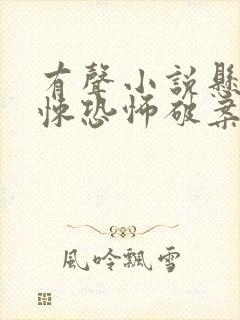 有聲小說懸
悚恐怖破案
風吟飄雪